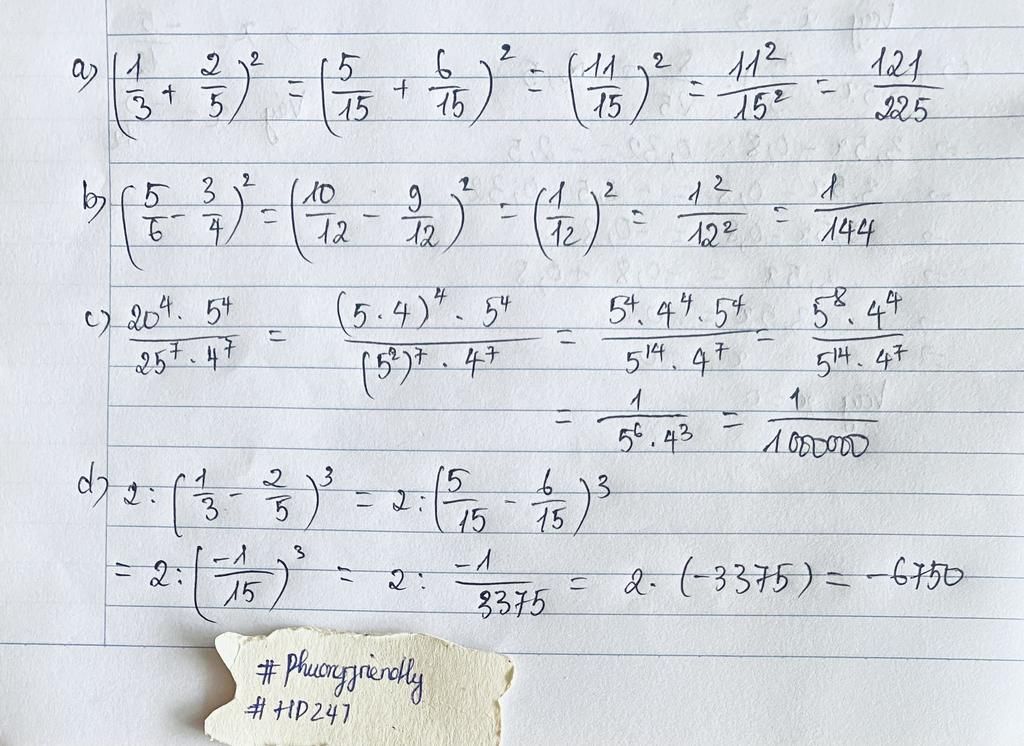 a) (1/3 + 2/5)² = (5/15 + 6/15)² = (11/15)² = 11²/15² = 121/225
b) (5/6 - 3/4)² = (10/12 - 9/12)² = (1/12)² = 1²/12² = 1/144
c) 20⁴ . 5⁴/25⁷ . 4⁷ = (5 . 4)⁴ . 5⁴/(5²)⁷ . 4⁷ = 5⁴ . 4⁴ . 5⁴/5¹⁴ . 4⁷ = 5⁸ . 4⁴/5¹⁴ . 4⁷
= 1/5⁶ . 4³ = 1/1000000
d) 2 : (1/3 - 2/5)³ = 2 : (5/15 - 6/15)³
= 2 : (-1/15)³ = 2 : -1/3375 = 2 . (-3375) = -6750
# Phuongfriendly
# HD247